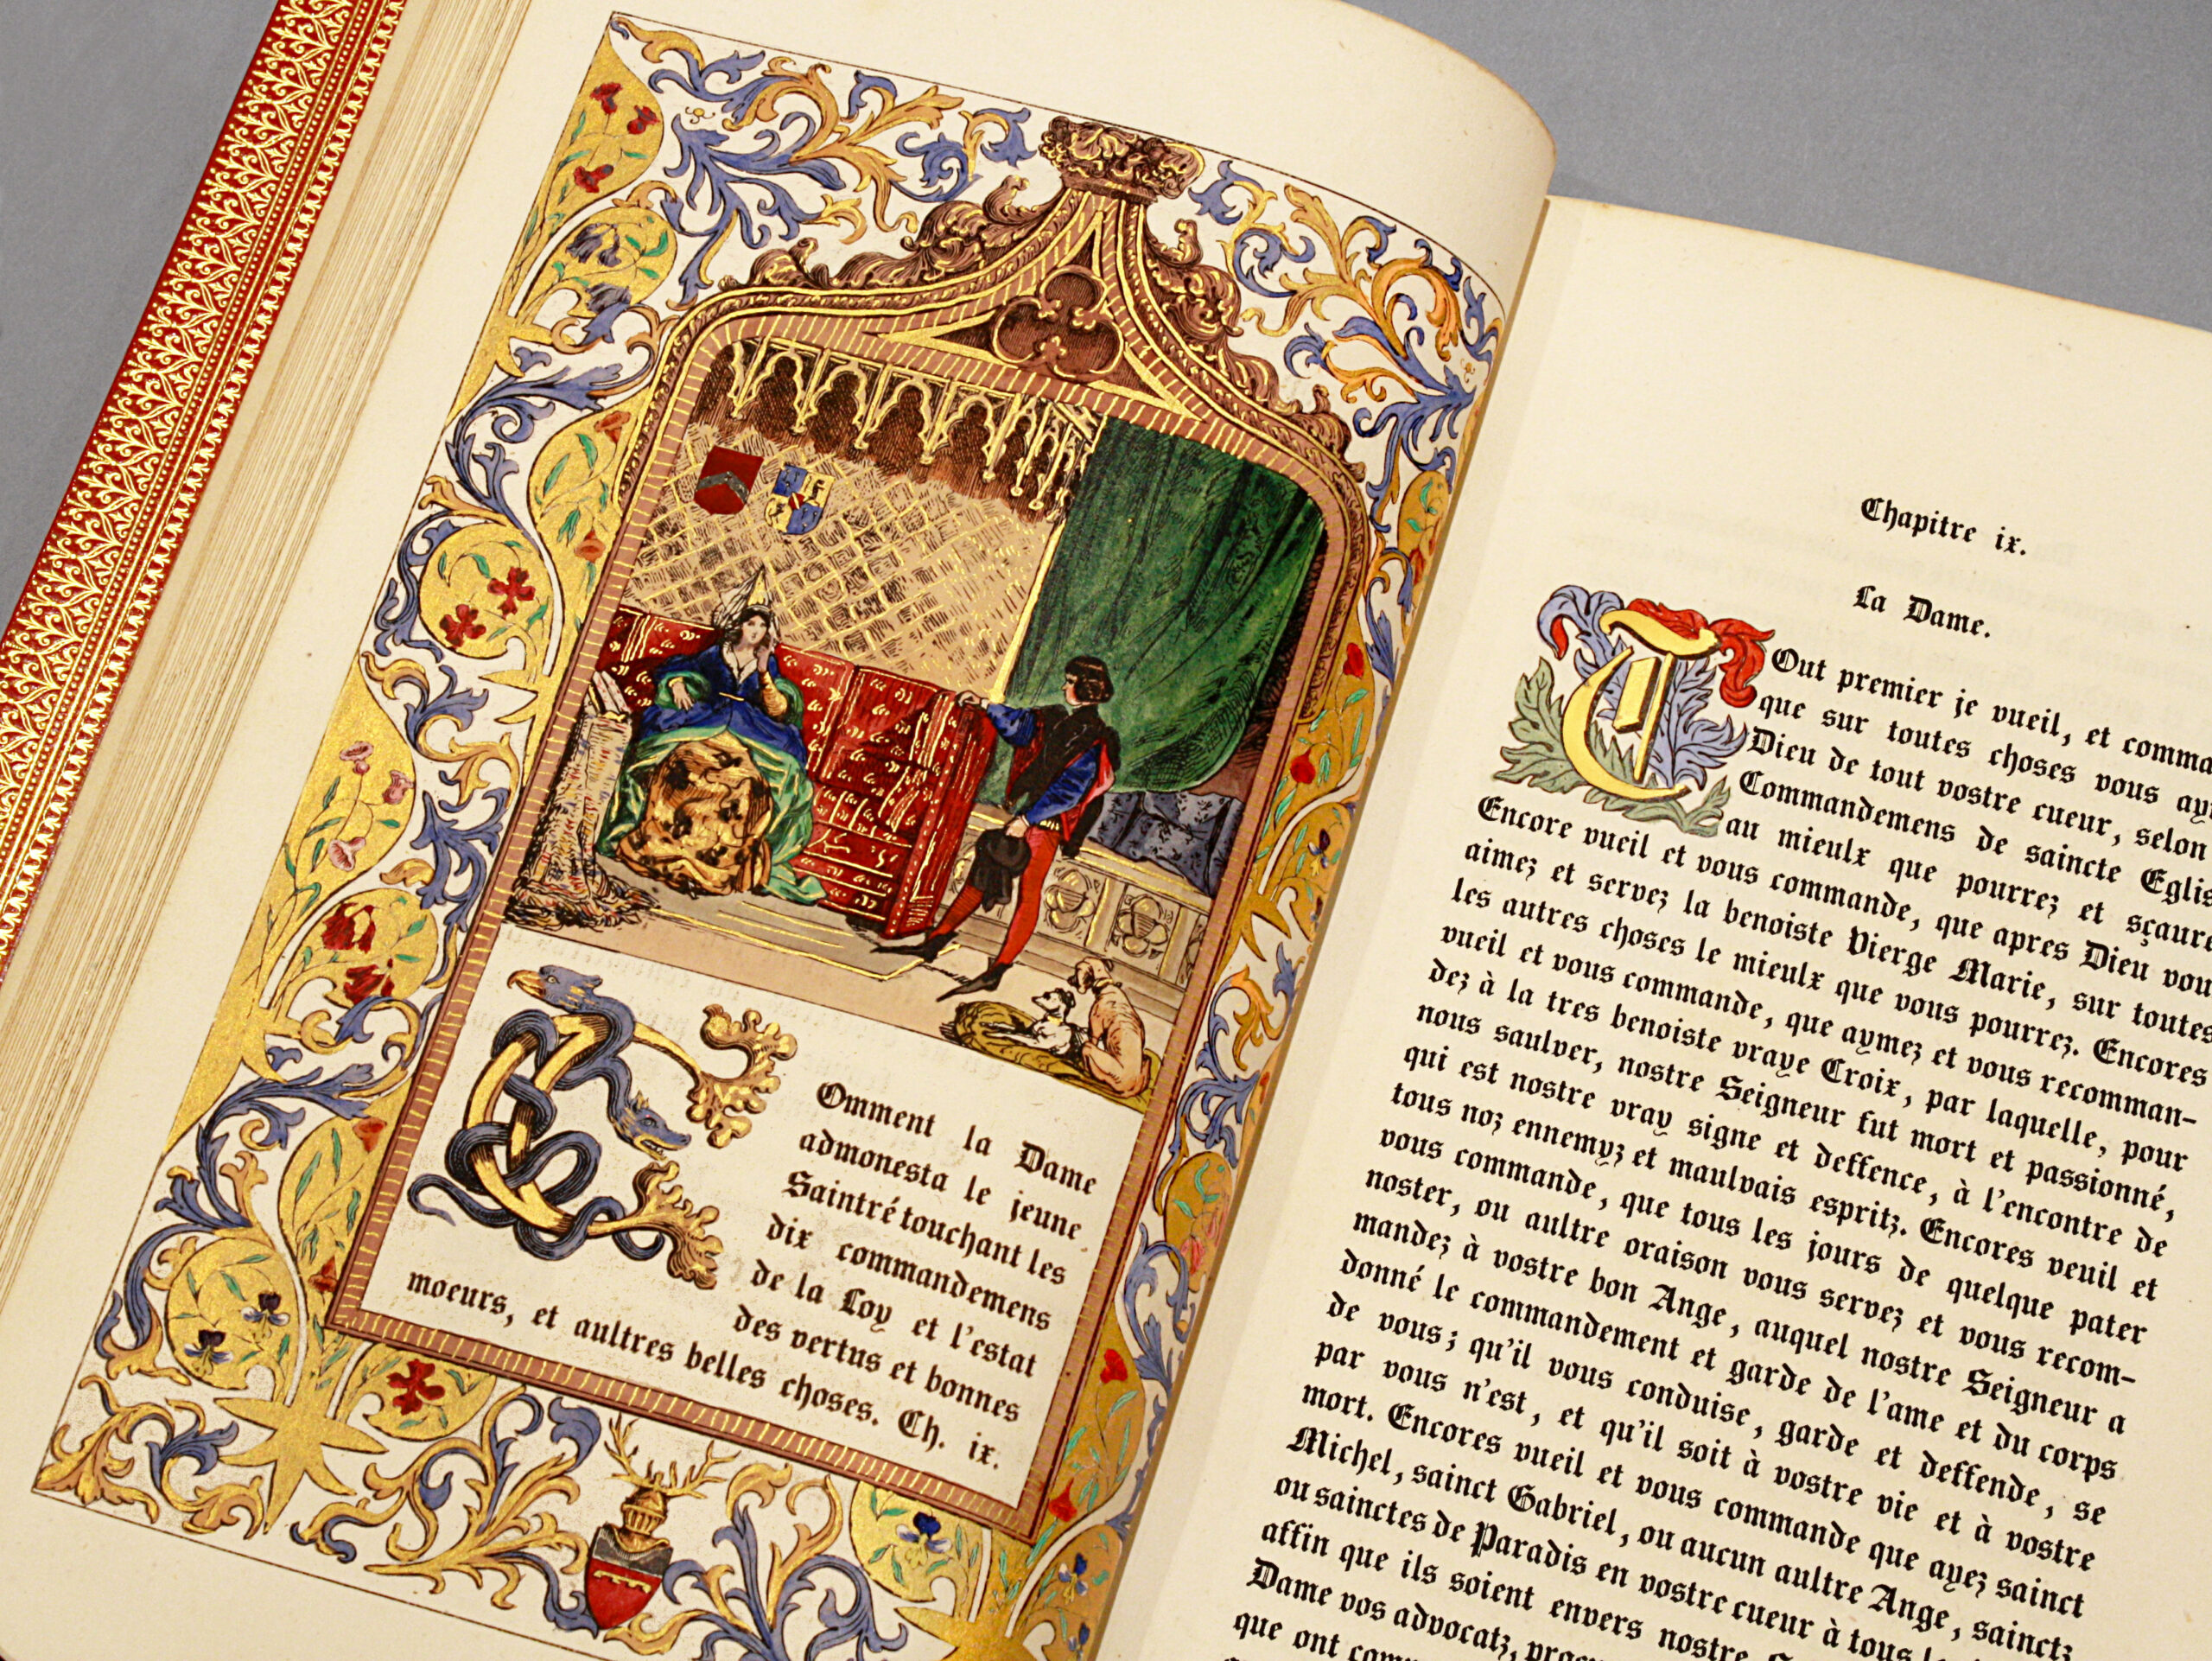 COmment la Dame
admonesta le jeune
Saintré touchant les
dix commandemens
de la Loy et l'estat
des vertus et bonnes
moeurs, et aultres belles choses. Ch. ix.
Chapitre ix.
La Dame.
TOut premier je vueil, et comma
que sur toutes choses vous ay
Dieu de tout vostre cueur, selon
Commandemens de saincte Eglis
au mieulx que pourrez et sçaure
Encore vueil et vous commande, que apres Dieu vou
aimez et servez la benoiste Vierge Marie, sur toutes
les autres choses le mieulx que vous pourrez. Encores
vueil et vous commande, que aymez et vous recomman-
dez à la tres benoiste vraye Croix, par laquelle, pour
nous saulver, nostre Seigneur fut mort et passionné,
qui est nostre vray signe et deffence, à l'encontre de
tous noz ennemyz et maulvais espritz. Encores veuil et
vous commande, que tous les jours de quelque pater
noster, ou aultre oraison vous servez et vous recom-
mandez à vostre bon Ange, auquel nostre Seigneur a
donné le commandement et garde de l'ame et du corps
de vous; qu'il vous conduise, garde et deffende, se
par vous n'est, et qu'il soit à vostre vie et à vostre
mort. Encores vueil et vous commande que ayez sainct
Michel, sainct Gabriel, ou aucun aultre Ange, sainctz
ou sainctes de Paradis en vostre cueur à tous
affin que ils soient envers nostre
Dame vos advocatz,
que ont